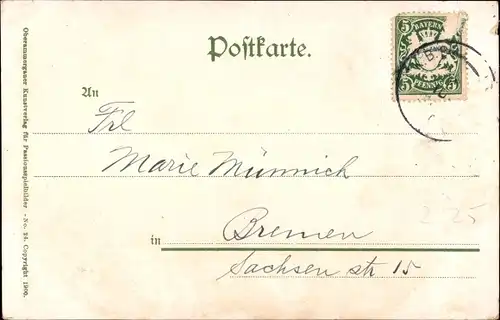 Postkarte.
5 BAYERN 5
5 PFENNIG 5
An
Frl
Marie Münnich
in Bremen
Sachsen str 15
2 25
Oberammergauer Kunstverlag für Passionsspielbilder - No. 24. Copyright 1900.